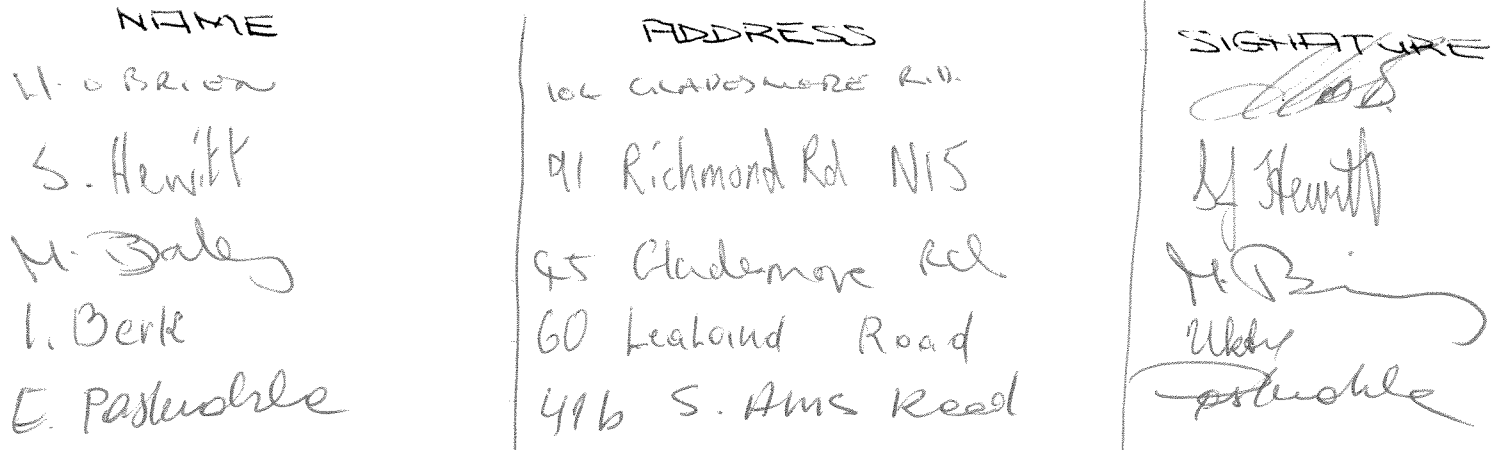 NAME ADDRESS SIGNATURE
H. O BRIEN 104 GLADESMORE RD.
S. Hewitt 91 Richmond Rd N15 SJ Hewitt
M. Daley 45 Gladesmore Rd M.
I. Berk 60 Lealand Road
E. 41b S. Ams Road